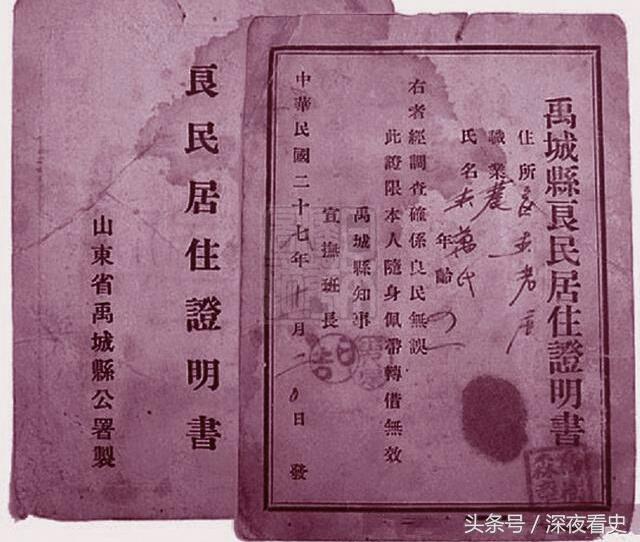 良民居住證明書
山東省禹城縣公署製
禹城縣良民居住證明書
住所
職業農
氏名 萬氏 年齡
右者經調查確係良民無誤
此證限本人隨身佩帶轉借無效
禹城縣知事
宣撫班長
中華民國二十七年 月 日發
头条号 / 深夜看史